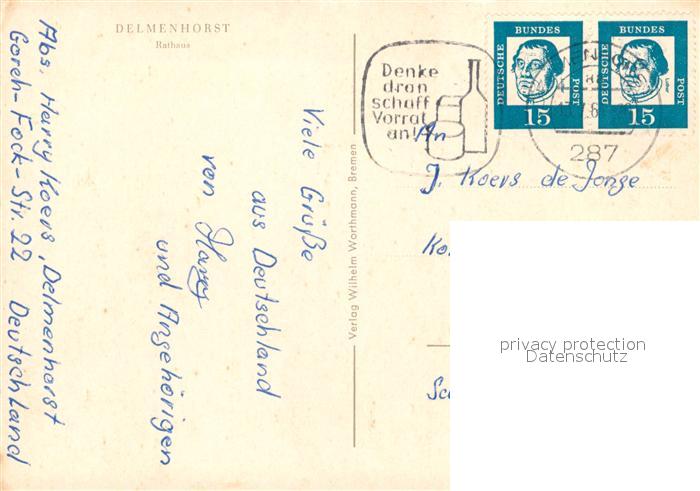 DELMENHORST
Rathaus
Abs. Harry Koers, Delmenhorst
Goreh-Fock-Str. 22 Deutschland
Viele Grüße
aus Deutschland
von Harry
und Angehörigen
Verlag Wilhelm Worthmann, Bremen
Denke
dran
schaff
Vorrat
an!
DEUTSCHE BUNDES POST
15
DEUTSCHE BUNDES POST
15
287
An
J. Koers de Jonge
privacy protection
Datenschutz